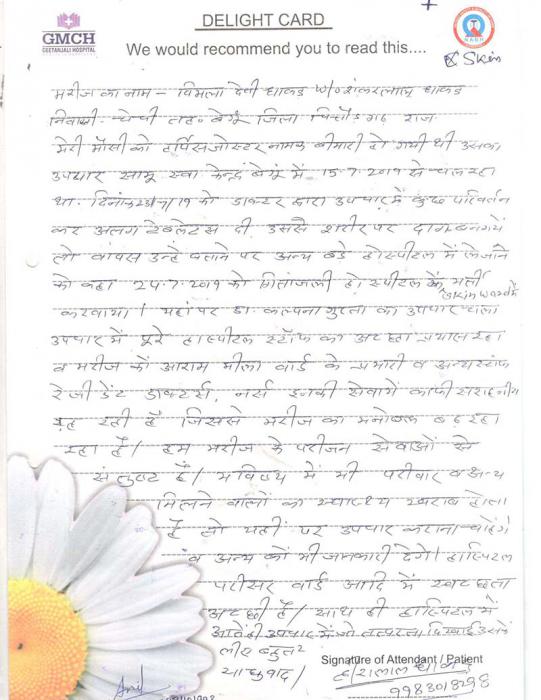 GMCH
GEETANJALI HOSPITAL
DELIGHT CARD
We would recommend you to read this....
NABH
Skin
मरीज का नाम - विमला देवी धाकड W/o शंकरलाल धाकड
निवासी - चेची तह० बेगूं जिला चित्तौडगढ राज
मेरी मौसी को हर्पिसजोस्टर नामक बीमारी हो गयी थी उसका
उपचार सामु स्वा केन्द्र बेगूं में 15.7.2019 से चल रहा
था. दिनांक 23/7/19 को डाक्टर द्वारा उपचार में कुछ परिवर्तन
कर अलग टेबलेटस दी उससे शरीर पर दाग बन गये
तो वापस उन्हे बताने पर अन्य बडे होस्पीटल में लेजाने
को कहा 24.7.2019 को गितांजली होस्पीटल के भर्ती
Skin Ward में
करवाया। यहां पर डा. कल्पना गुप्ता का उपचार चला
उपचार में पूरे हास्पिटल स्टॉफ का अच्छा प्रयास रहा
व मरीज को आराम मीला वार्ड के प्रभारी व अन्य स्टॉफ
रेजीडेंट डाक्टर्स, नर्स इनकी सेवायें काफी सराहनीय
रह रही है जिससे मरीज का मनोबल बढ रहा
रहा है। हम मरीज के परीजन सेवाओं से
संतुष्ट है। भविष्य में भी परीवार व अन्य
मिलने वालों का स्वास्थ्य खराब होता
है तो यहीं पर उपचार कराना चाहेंगे
व अन्य को भी जानकारी देंगे। हास्पिटल
परीसर वार्ड आदि में स्वच्छता
अच्छी है। साथ ही हास्पिटल में
आते ही उपचार में जो तत्परता दिखाई उसके
लीए बहुत२
साधुवाद।
Signature of Attendant / Patient
9983018298